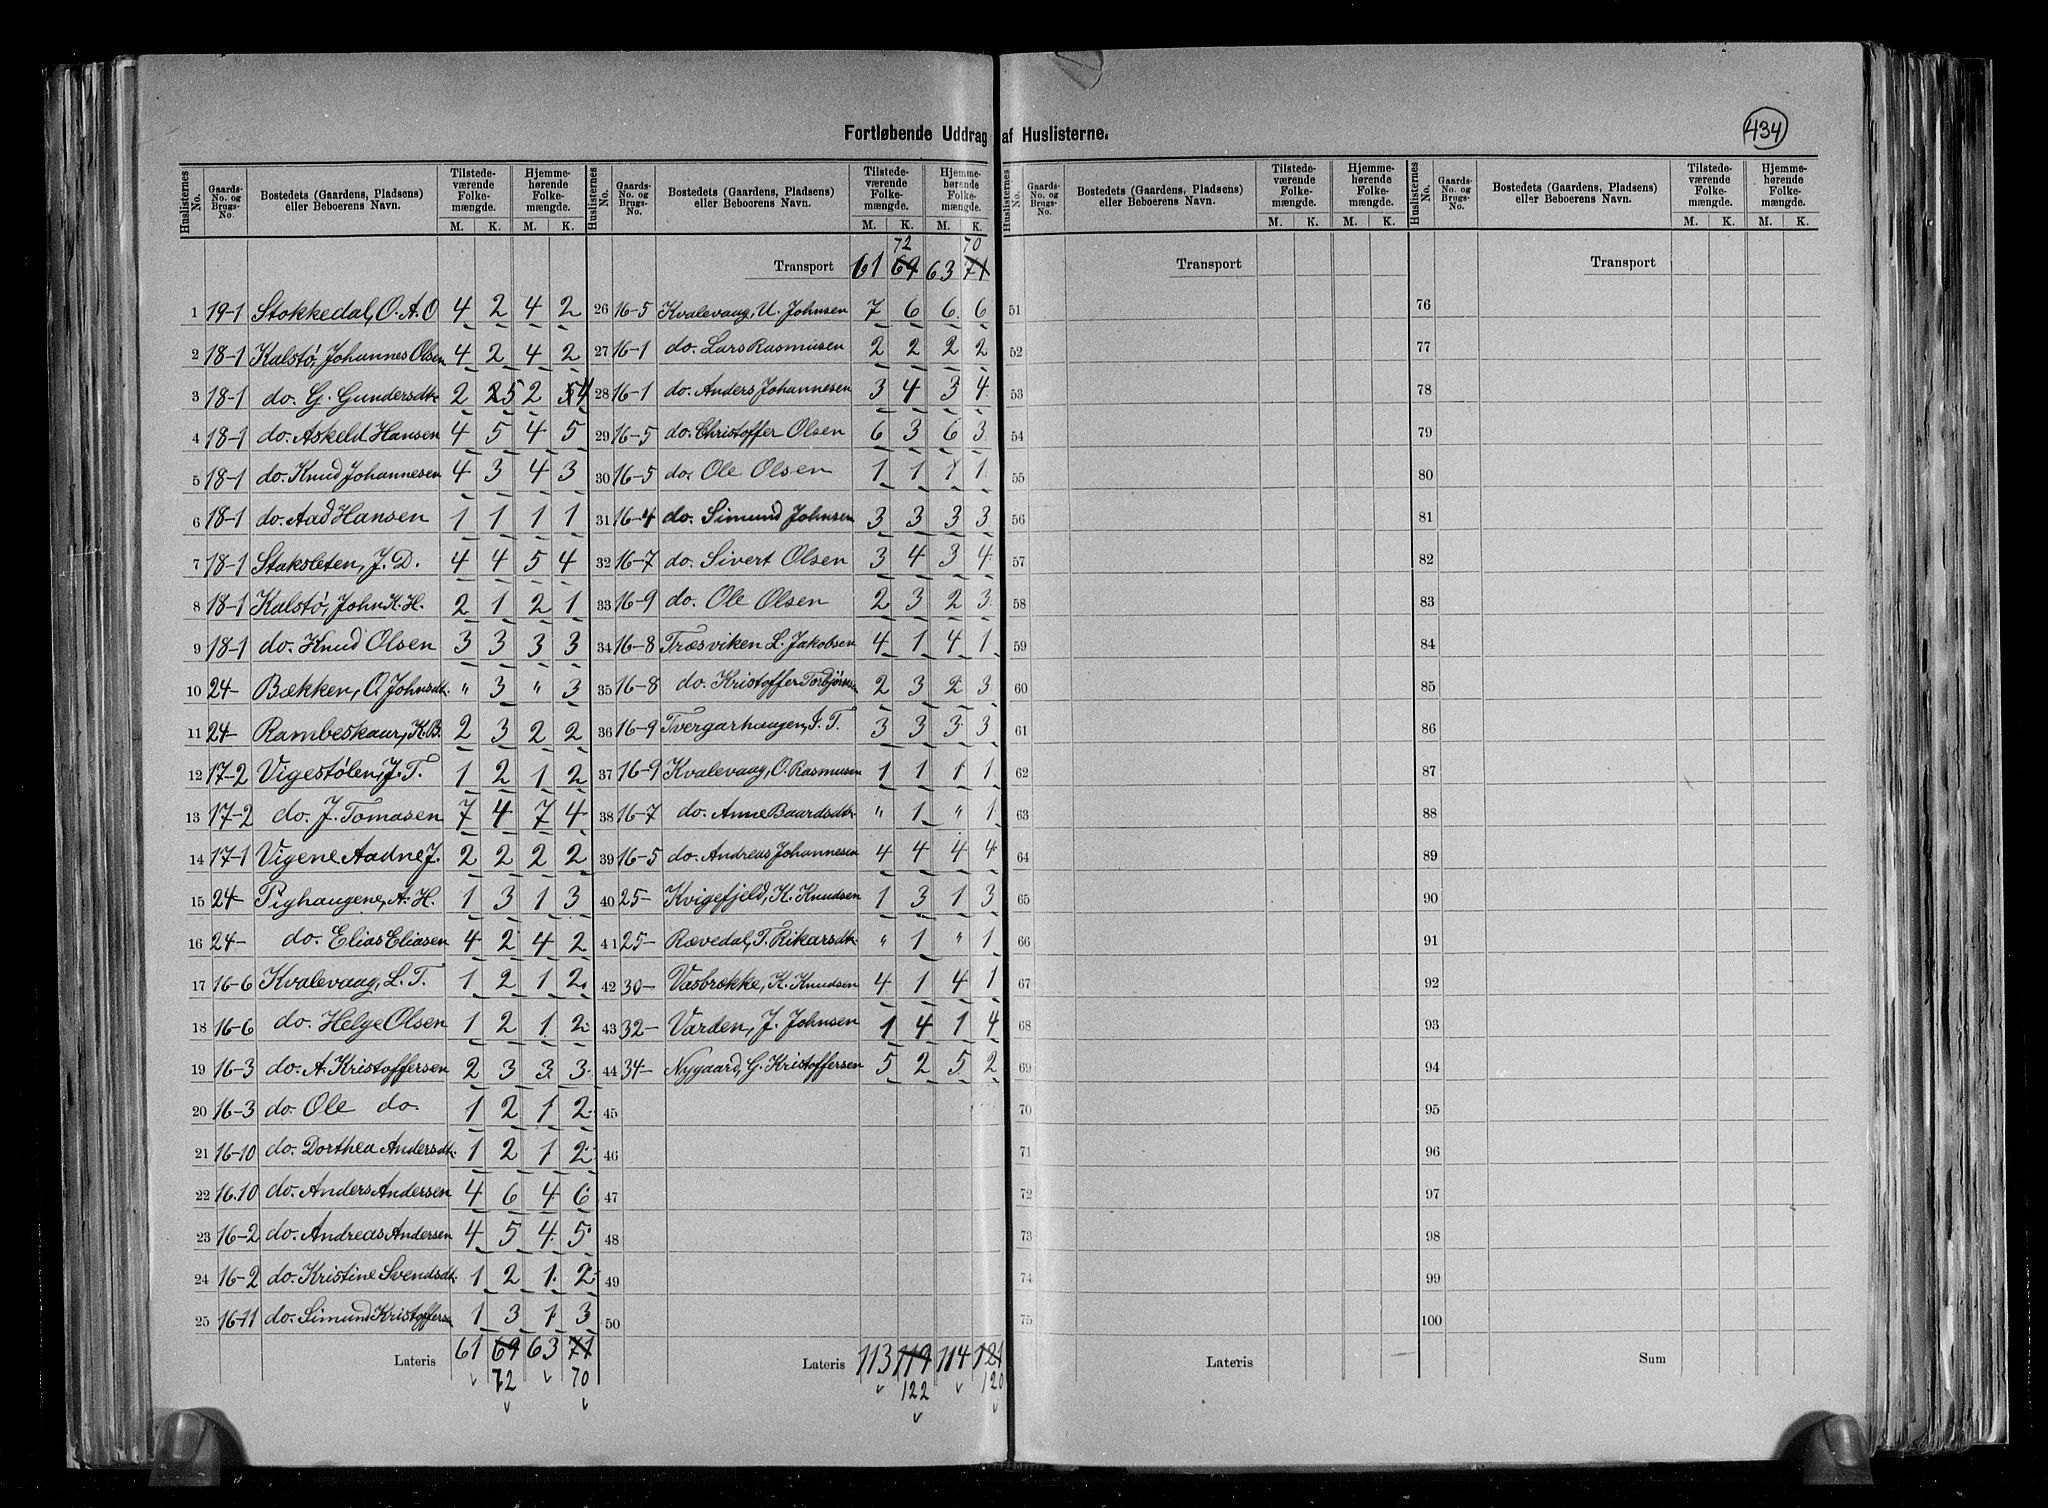 Fortløbende Uddrag af Huslisterne.
434
Huslisternes No. | Gaards-No. og Brugs-No. | Bostedets (Gaardens, Pladsens) eller Beboerens Navn. | Tilstedeværende Folkemængde. M. K. | Hjemmehørende Folkemængde. M. K.
1 19-1 Stokkedal, O. A. O 4 2 4 2
2 18-1 Kalstø, Johannes Olsen 4 2 4 2
3 18-1 do. G. Gundersdtr 2 5 2 4
4 18-1 do. Askeld Hansen 4 5 4 5
5 18-1 do. Knud Johannesen 4 3 4 3
6 18-1 do. Aad Hansen 1 1 1 1
7 18-1 Staksleten, J. D. 4 4 5 4
8 18-1 Kalstø, John K. H. 2 1 2 1
9 18-1 do. Knud Olsen 3 3 3 3
10 24- Bækken, O. Johnsdt. " 3 " 3
11 24- Rambeskaur, K. B. 2 3 2 2
12 17-2 Vigestølen, J. T. 1 2 1 2
13 17-2 do. J. Tomasen 7 4 7 4
14 17-1 Vigene Aadne J. 2 2 2 2
15 24- Pighaugene, A. H. 1 3 1 3
16 24- do. Elias Eliasen 4 2 4 2
17 16-6 Kvalevaag, L. T. 1 2 1 2
18 16-6 do. Helge Olsen 1 2 1 2
19 16-3 do. A. Kristoffersen 2 3 3 3
20 16-3 do. Ole do. 1 2 1 2
21 16-10 do. Dorthea Andersdt. 1 2 1 2
22 16.10 do. Anders Andersen 4 6 4 6
23 16-2 do. Andreas Andersen 4 5 4 5
24 16-2 do. Kristine Svendsdt. 1 2 1 2
25 16-11 do. Simund Kristoffersen 1 3 1 3
Lateris 61 69 63 71
72 70
Huslisternes No. | Gaards-No. og Brugs-No. | Bostedets (Gaardens, Pladsens) eller Beboerens Navn. | Tilstedeværende Folkemængde. M. K. | Hjemmehørende Folkemængde. M. K.
72 70
Transport 61 69 63 71
26 16-5 Kvalevaag, U. Johnsen 7 6 6 6
27 16-1 do. Lars Rasmusen 2 2 2 2
28 16-1 do. Anders Johannesen 3 4 3 4
29 16-5 do. Christoffer Olsen 6 3 6 3
30 16-5 do. Ole Olsen 1 1 1 1
31 16-4 do. Simund Johnsen 3 3 3 3
32 16-7 do. Sivert Olsen 3 4 3 4
33 16-9 do. Ole Olsen 2 3 2 3
34 16-8 Træsviken L. Jakobsen 4 1 4 1
35 16-8 do. Kristoffer Torbjørnsen 2 3 2 3
36 16-9 Tvergarhaugen, I. T. 3 3 3 3
37 16-9 Kvalevaag, O. Rasmusen 1 1 1 1
38 16-7 do. Anne Baardsdtr. " 1 " 1
39 16-5 do. Andreas Johannesen 4 4 4 4
40 25- Kvigefjeld, K. Knudsen 1 3 1 3
41 25- Rævedal, T. Rikarsdt. " 1 " 1
42 30- Vasbrække, K. Knudsen 4 1 4 1
43 32- Varden, J. Johnsen 1 4 1 4
44 34- Nygaard, G. Kristoffersen 5 2 5 2
45
46
47
48
49
50
Lateris 113 119 114 121
122 120
Huslisternes No. | Gaards-No. og Brugs-No. | Bostedets (Gaardens, Pladsens) eller Beboerens Navn. | Tilstedeværende Folkemængde. M. K. | Hjemmehørende Folkemængde. M. K.
Transport
51
52
53
54
55
56
57
58
59
60
61
62
63
64
65
66
67
68
69
70
71
72
73
74
75
Lateris
Huslisternes No. | Gaards-No. og Brugs-No. | Bostedets (Gaardens, Pladsens) eller Beboerens Navn. | Tilstedeværende Folkemængde. M. K. | Hjemmehørende Folkemængde. M. K.
Transport
76
77
78
79
80
81
82
83
84
85
86
87
88
89
90
91
92
93
94
95
96
97
98
99
100
Sum